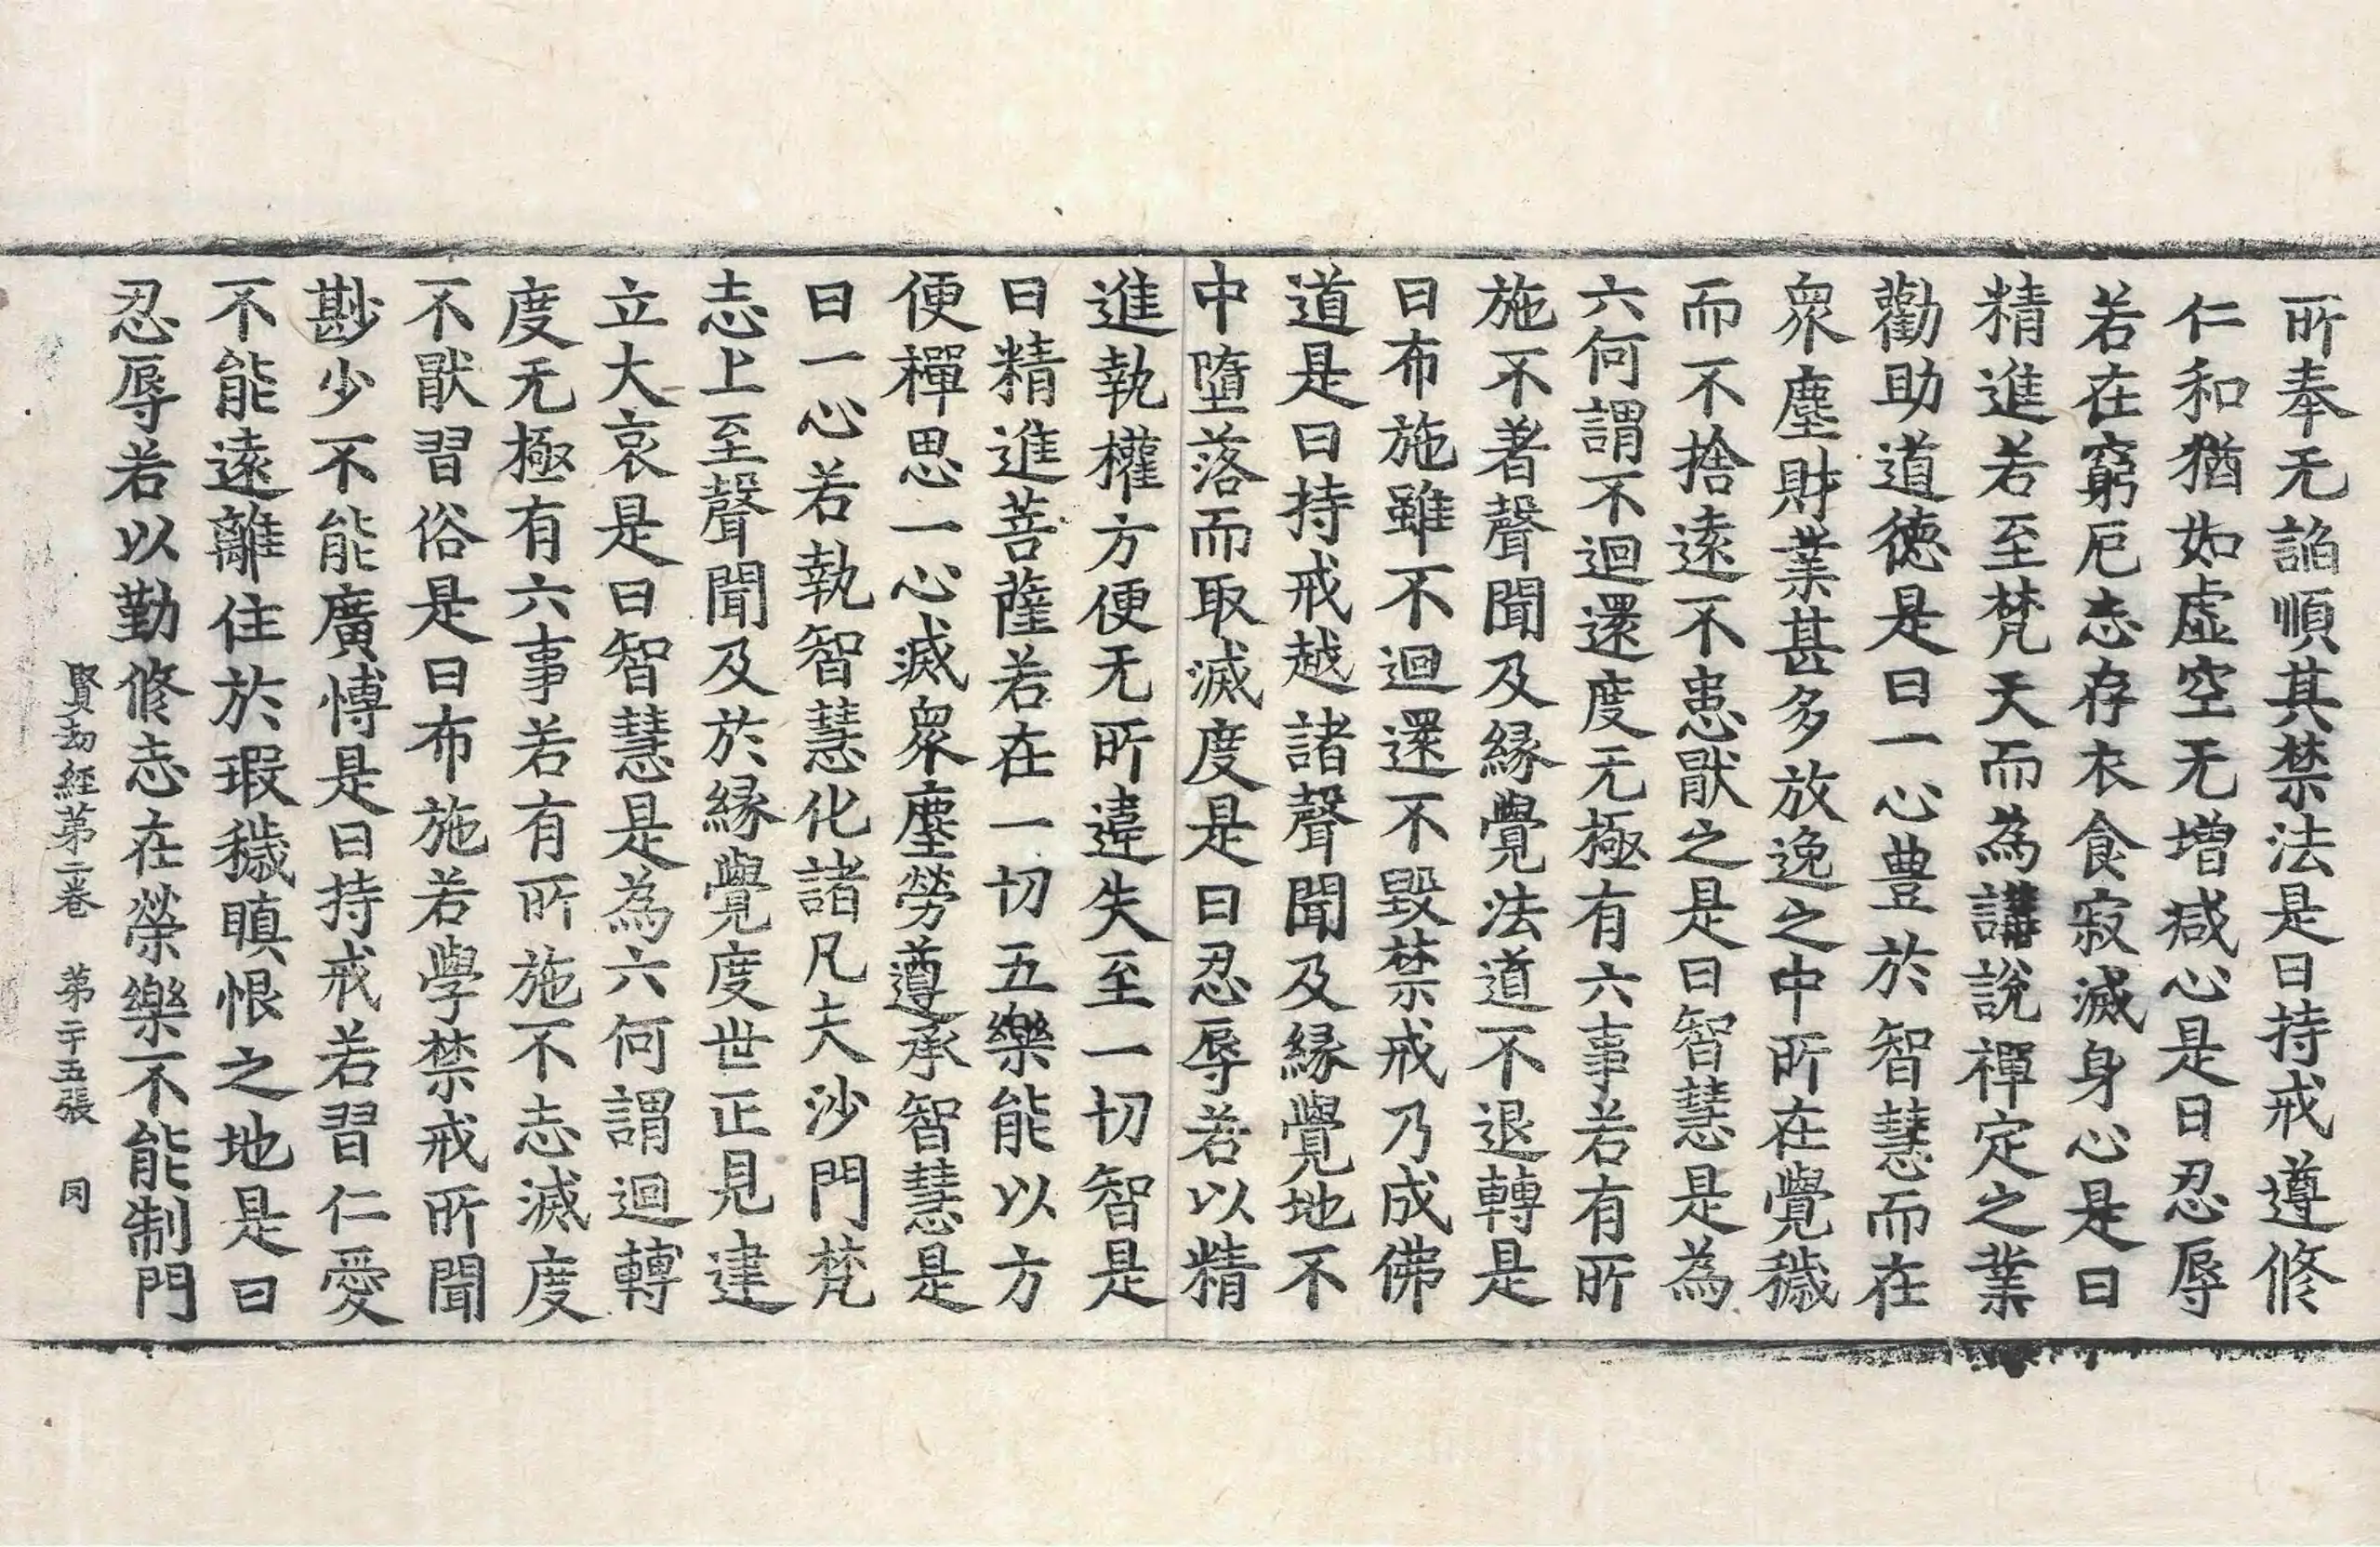 所奉无諂順其禁法是曰持戒遵修
仁和猶如虛空无增減心是曰忍辱
若在窮厄志存衣食寂滅身心是曰
精進若至梵天而為講說禪定之業
勸助道德是曰一心豊於智慧而在
衆塵財業甚多放逸之中所在覺穢
而不捨遠不患猒之是曰智慧是為
六何謂不迴還度无極有六事若有所
施不著聲聞及緣覺法道不退轉是
曰布施雖不迴還不毀禁戒乃成佛
道是曰持戒越諸聲聞及緣覺地不
中墮落而取滅度是曰忍辱若以精
進執權方便无所違失至一切智是
曰精進菩薩若在一切五樂能以方
便禪思一心滅衆塵勞遵承智慧是
曰一心若執智慧化諸凡夫沙門梵
志上至聲聞及於緣覺度世正見建
立大哀是曰智慧是為六何謂迴轉
度无極有六事若有所施不志滅度
不猒習俗是曰布施若學禁戒所聞
尠少不能廣博是曰持戒若習仁愛
不能遠離住於瑕穢瞋恨之地是曰
忍辱若以勤修志在榮樂不能制門
賢劫經第二卷　第二十五張　同